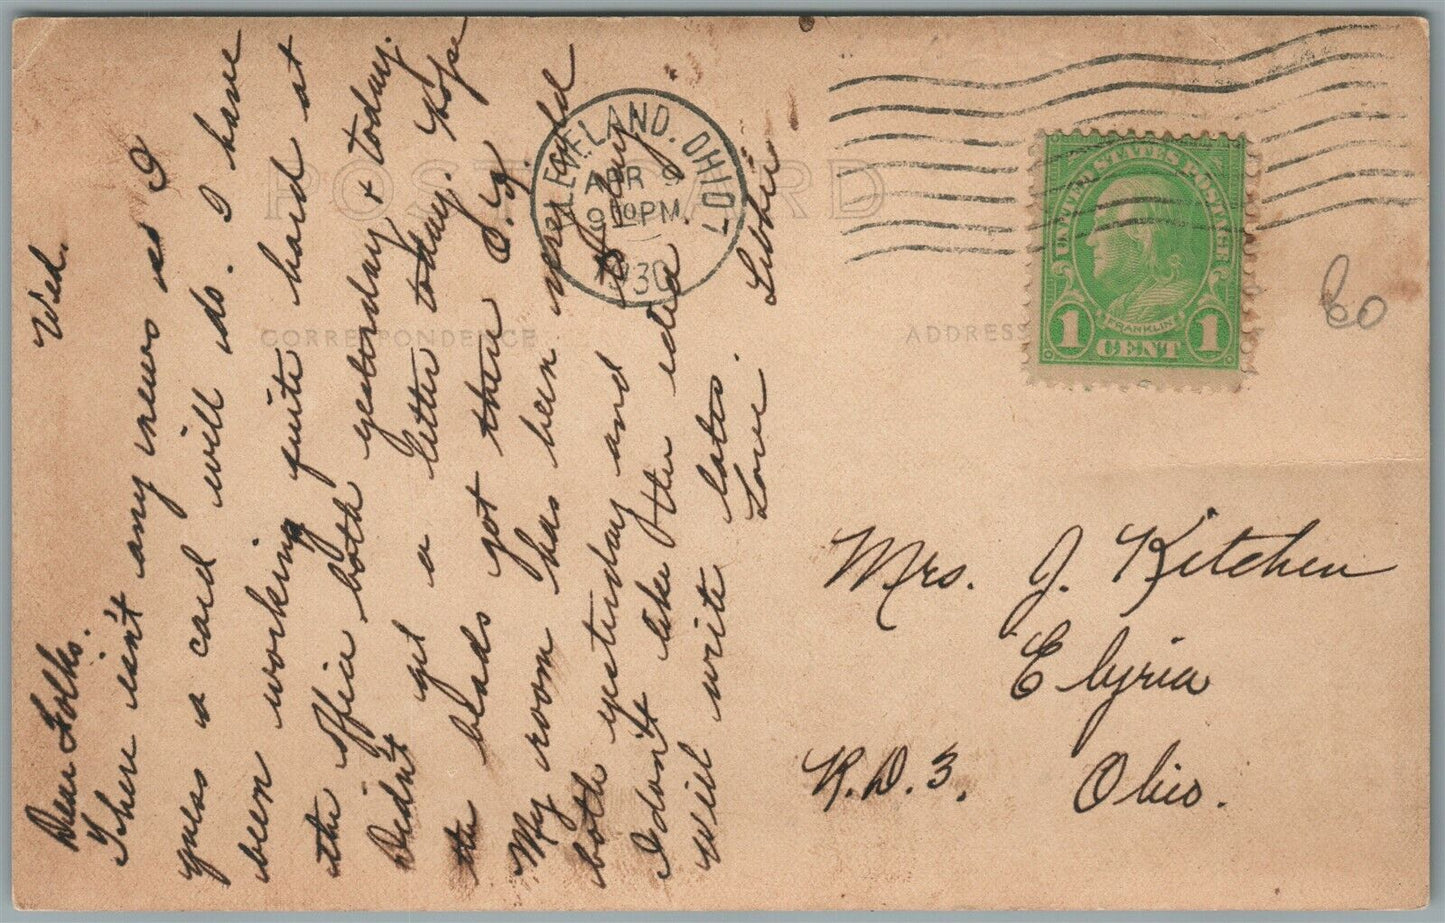 POST CARD
CORRESPONDENCE
ADDRESS
CLEVELAND, OHIO
APR 9
9 PM
1930
UNITED STATES POSTAGE
FRANKLIN
1 CENT 1
60
Wed.
Dear Folks.
There isn't any news so I
guess a card will do. I have
been working quite hard at
the office both yesterday + today.
Didn't get a letter today. Hope
the blads got there O.K.
My room has been very cold
both yesterday and today
I don't like the idea
Will write later.
Love Libbie
Mrs. J. Kitchen
Elyria
R.D. 3. Ohio.